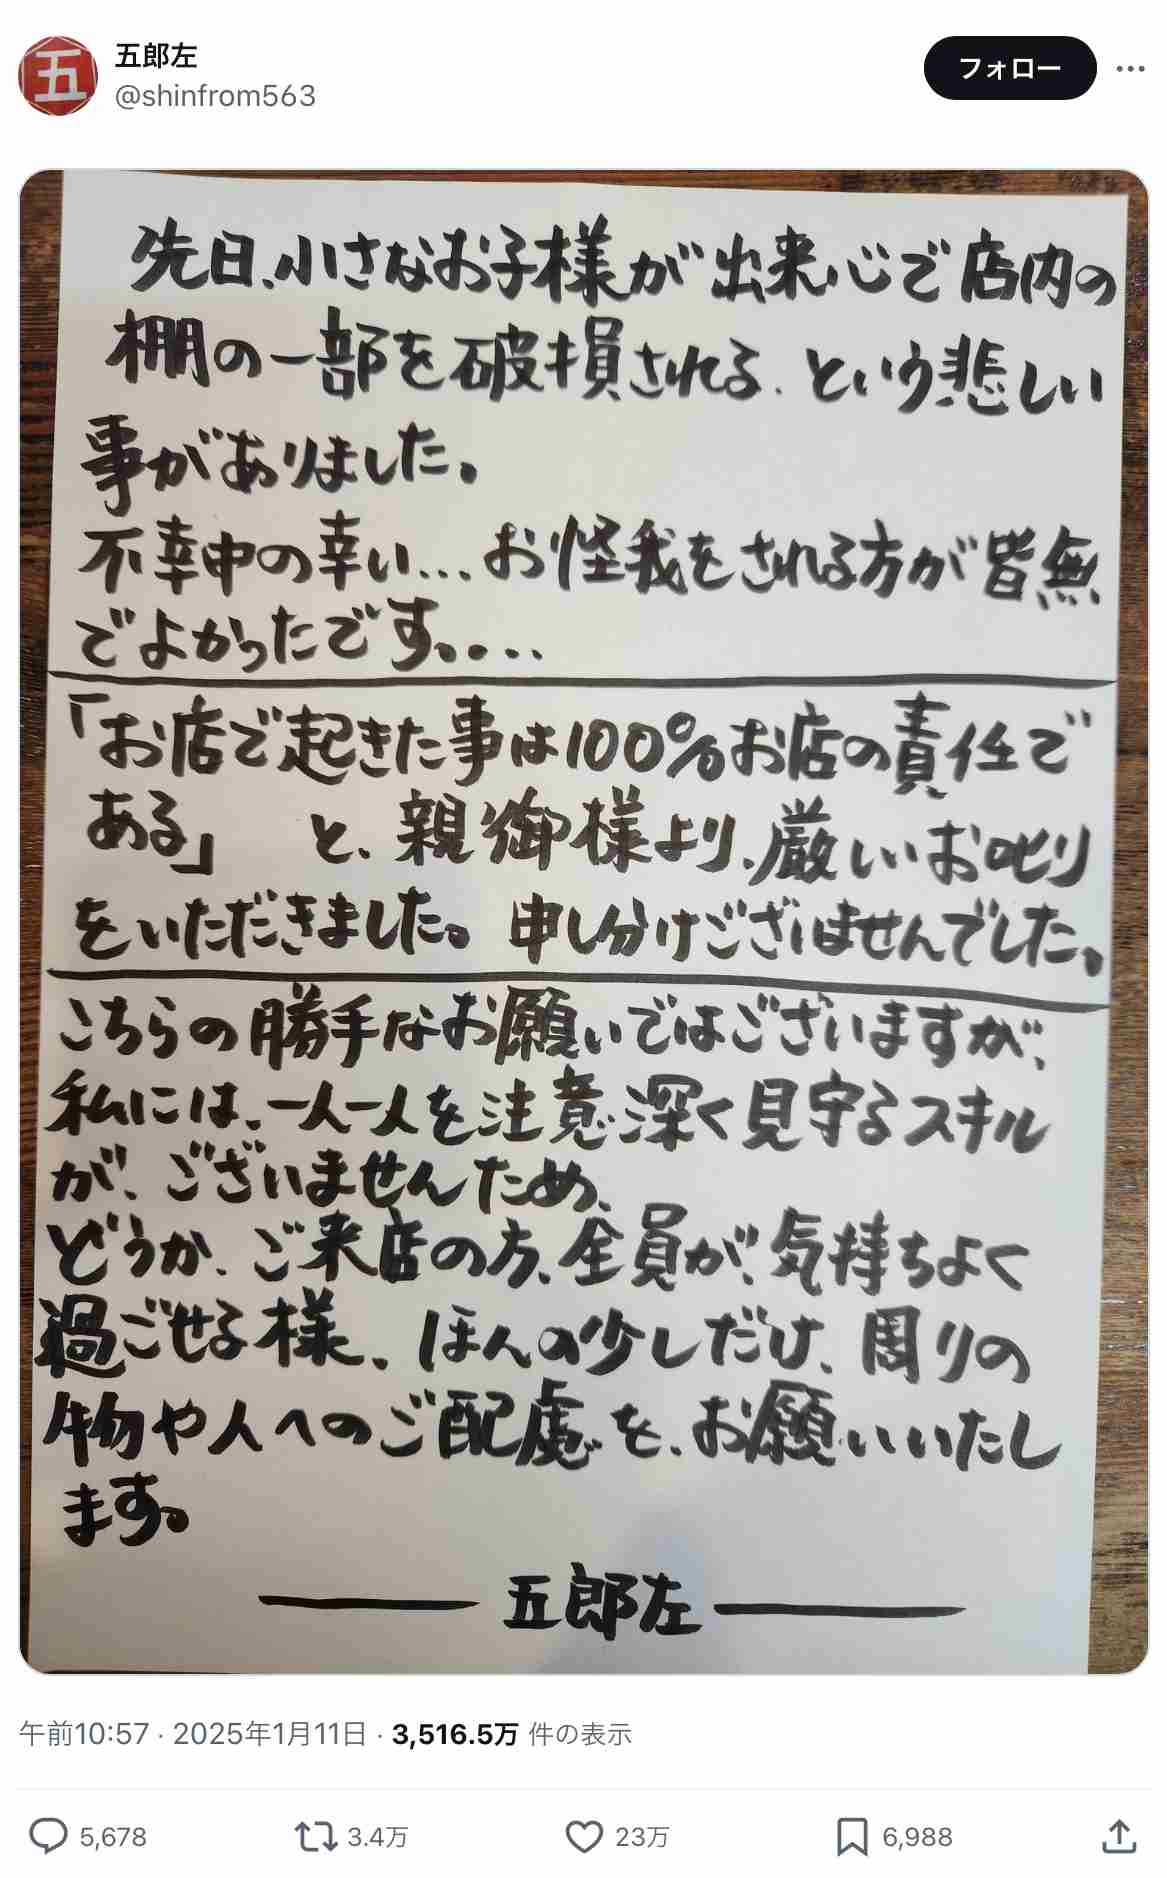 五郎左
@shinfrom563
フォロー
先日、小さなお子様が出来心で店内の
棚の一部を破損される、という悲しい
事がありました。
不幸中の幸い…お怪我をされる方が皆無
でよかったです。...
「お店で起きた事は100%お店の責任で
ある」 と、親御様より、厳しいお叱り
をいただきました。申し分けございませんでした。
こちらの勝手なお願いではございますが、
私には、一人一人を注意深く見守るスキル
が、ございませんため、
どうか、ご来店の方、全員が、気持ちよく
過ごせる様、ほんの少しだけ、周りの
物や人へのご配慮を、お願いいたし
ます。
五郎左
午前10:57 · 2025年1月11日 · 3,516.5万 件の表示
5,678 3.4万 23万 6,988